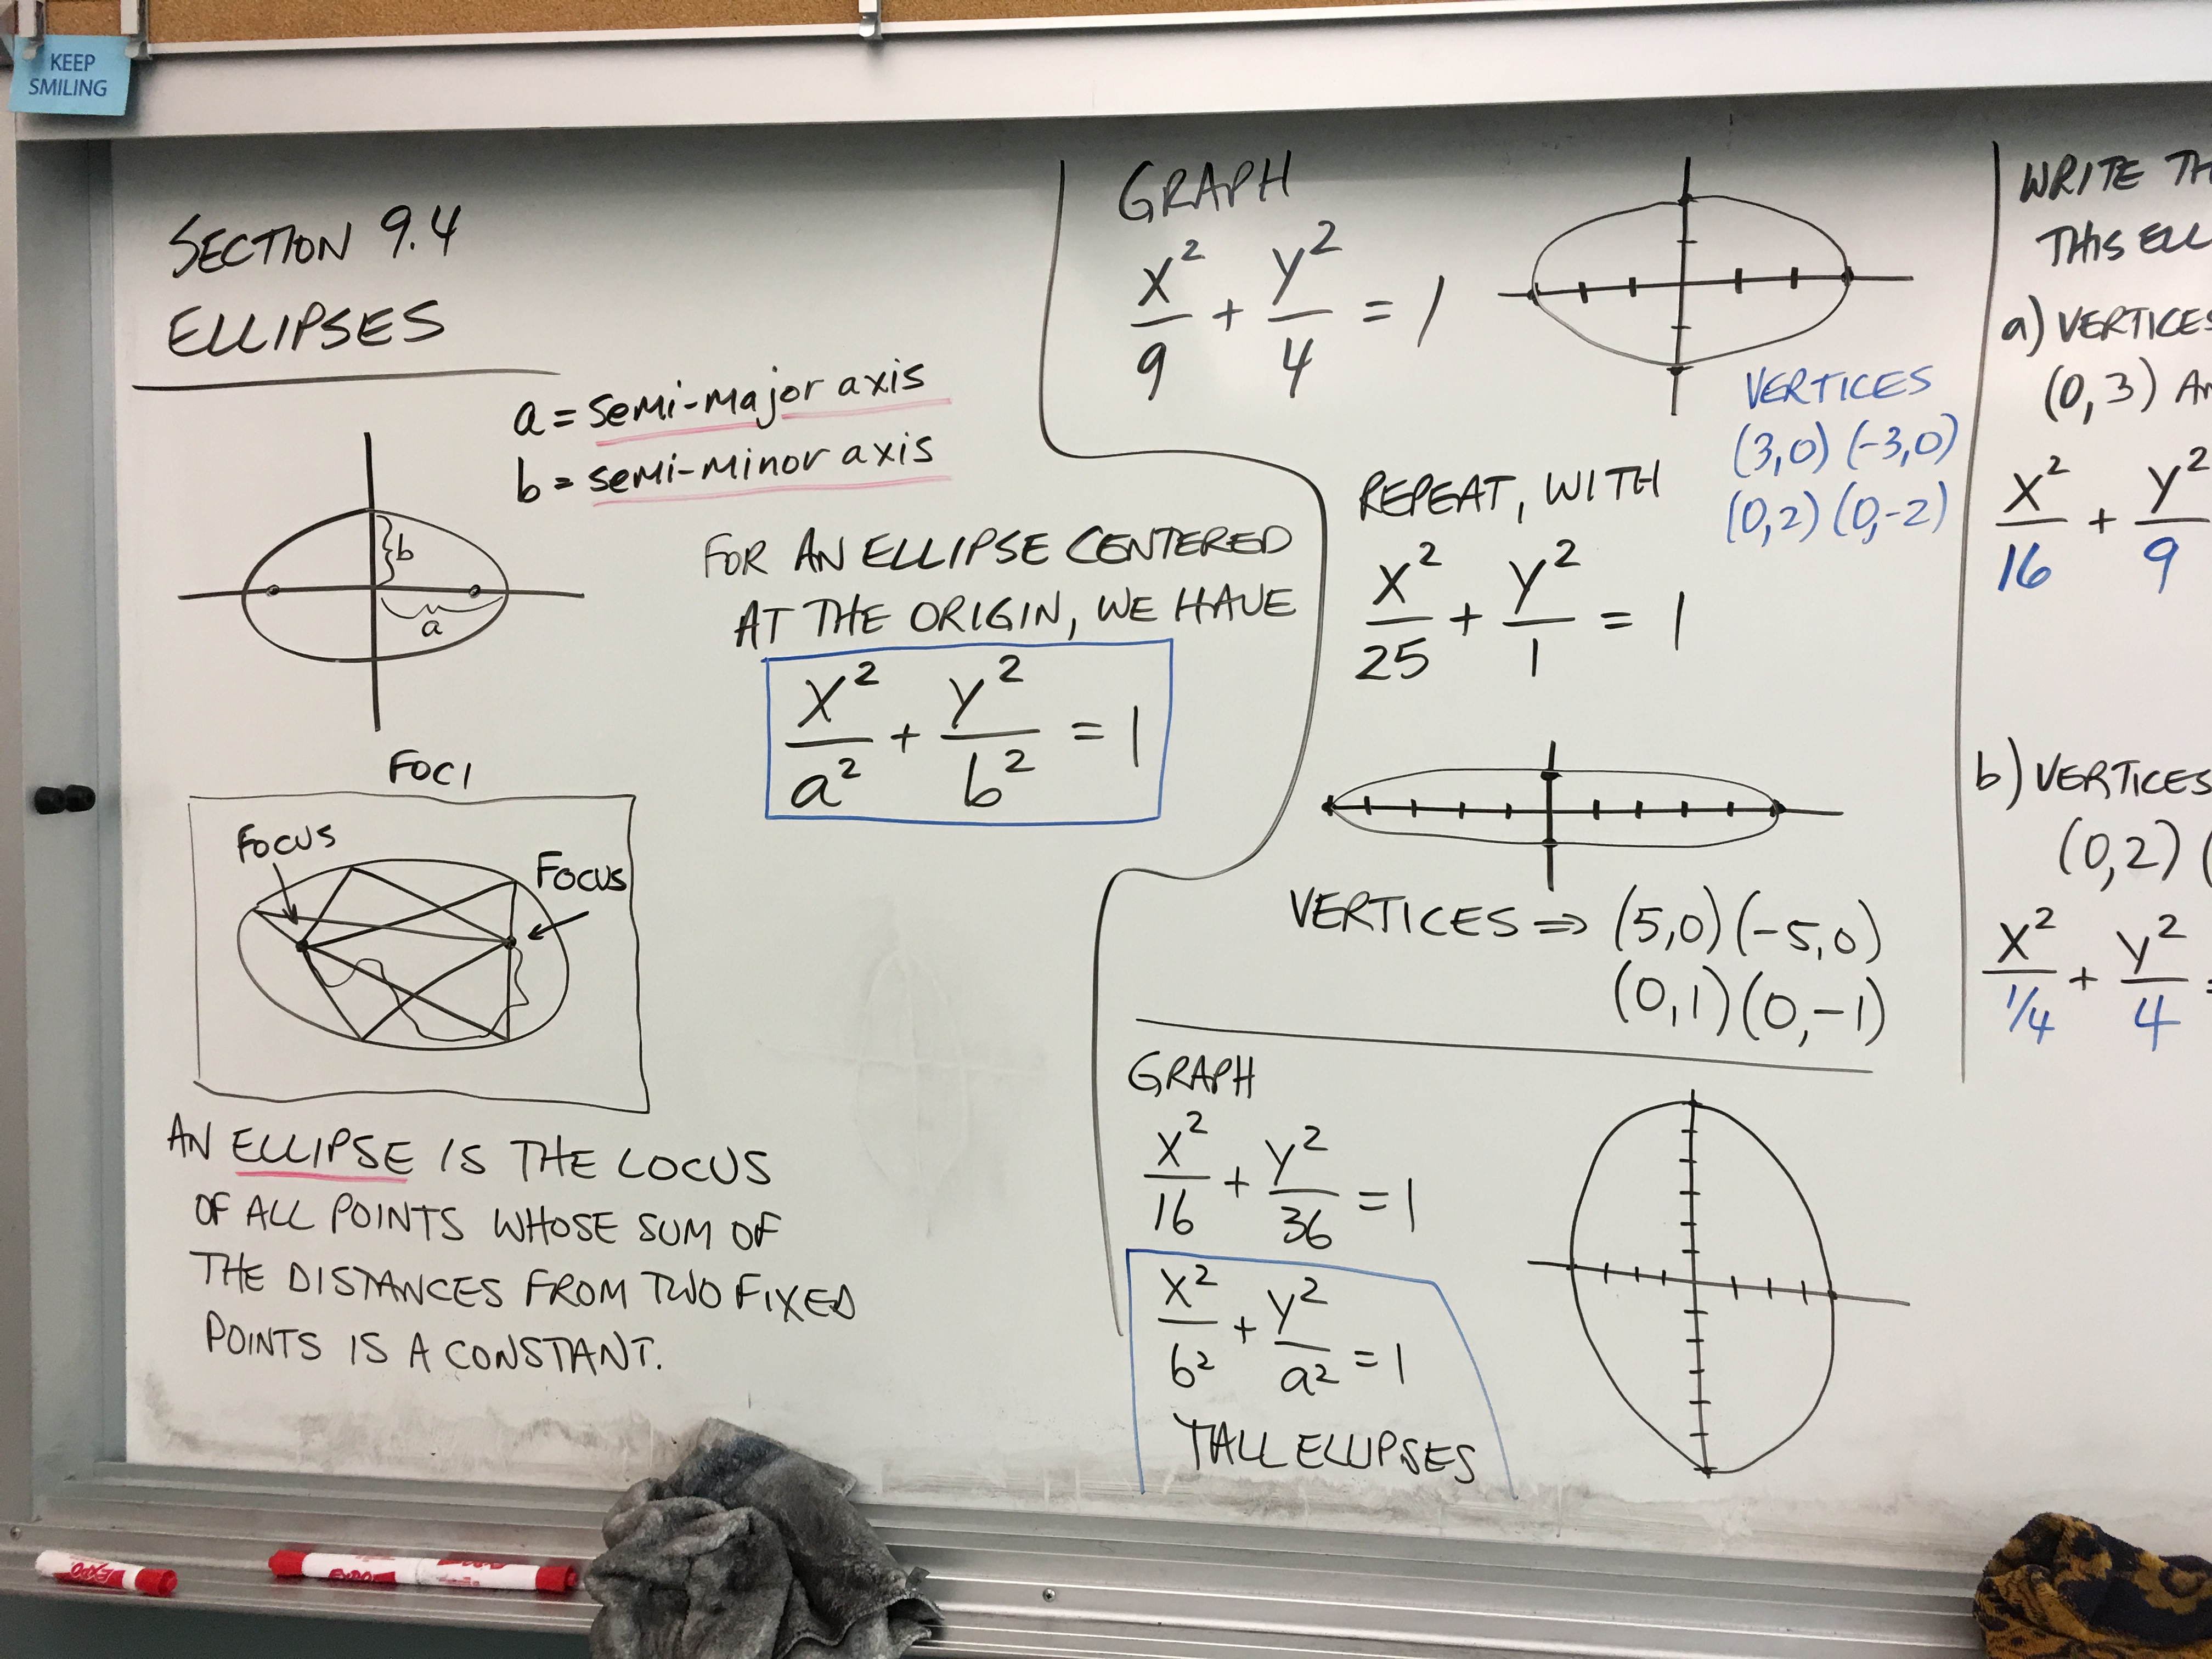 KEEP
SMILING
SECTION 9.4
ELLIPSES
a = semi-major axis
b = semi-minor axis
b
a
FOR AN ELLIPSE CENTERED
AT THE ORIGIN, WE HAVE
x²/a² + y²/b² = 1
FOCI
FOCUS
FOCUS
AN ELLIPSE IS THE LOCUS
OF ALL POINTS WHOSE SUM OF
THE DISTANCES FROM TWO FIXED
POINTS IS A CONSTANT.
GRAPH
x²/9 + y²/4 = 1
VERTICES
(3,0) (-3,0)
(0,2) (0,-2)
REPEAT, WITH
x²/25 + y²/1 = 1
VERTICES ⇒ (5,0) (-5,0)
(0,1) (0,-1)
GRAPH
x²/16 + y²/36 = 1
x²/b² + y²/a² = 1
TALL ELLIPSES
WRITE TH
THIS ELL
a) VERTICES
(0,3) AN
x²/16 + y²/9
b) VERTICES
(0,2) (
x²/1/4 + y²/4 =
EXPO
EXPO